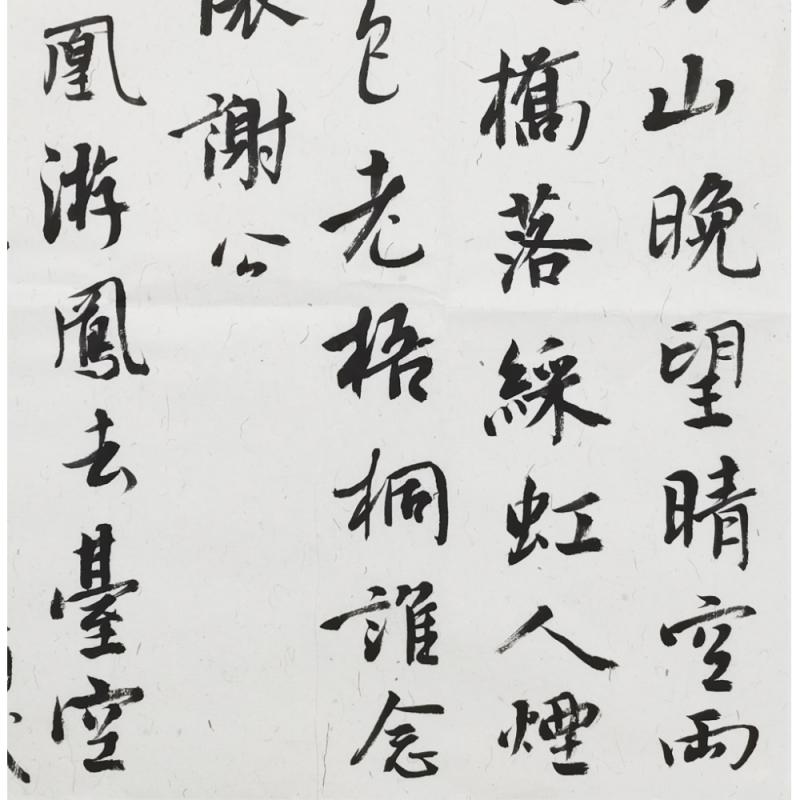 山晚望晴空雨
橋落綵虹人煙
色老梧桐誰念
懷謝公
凰游鳳去臺空